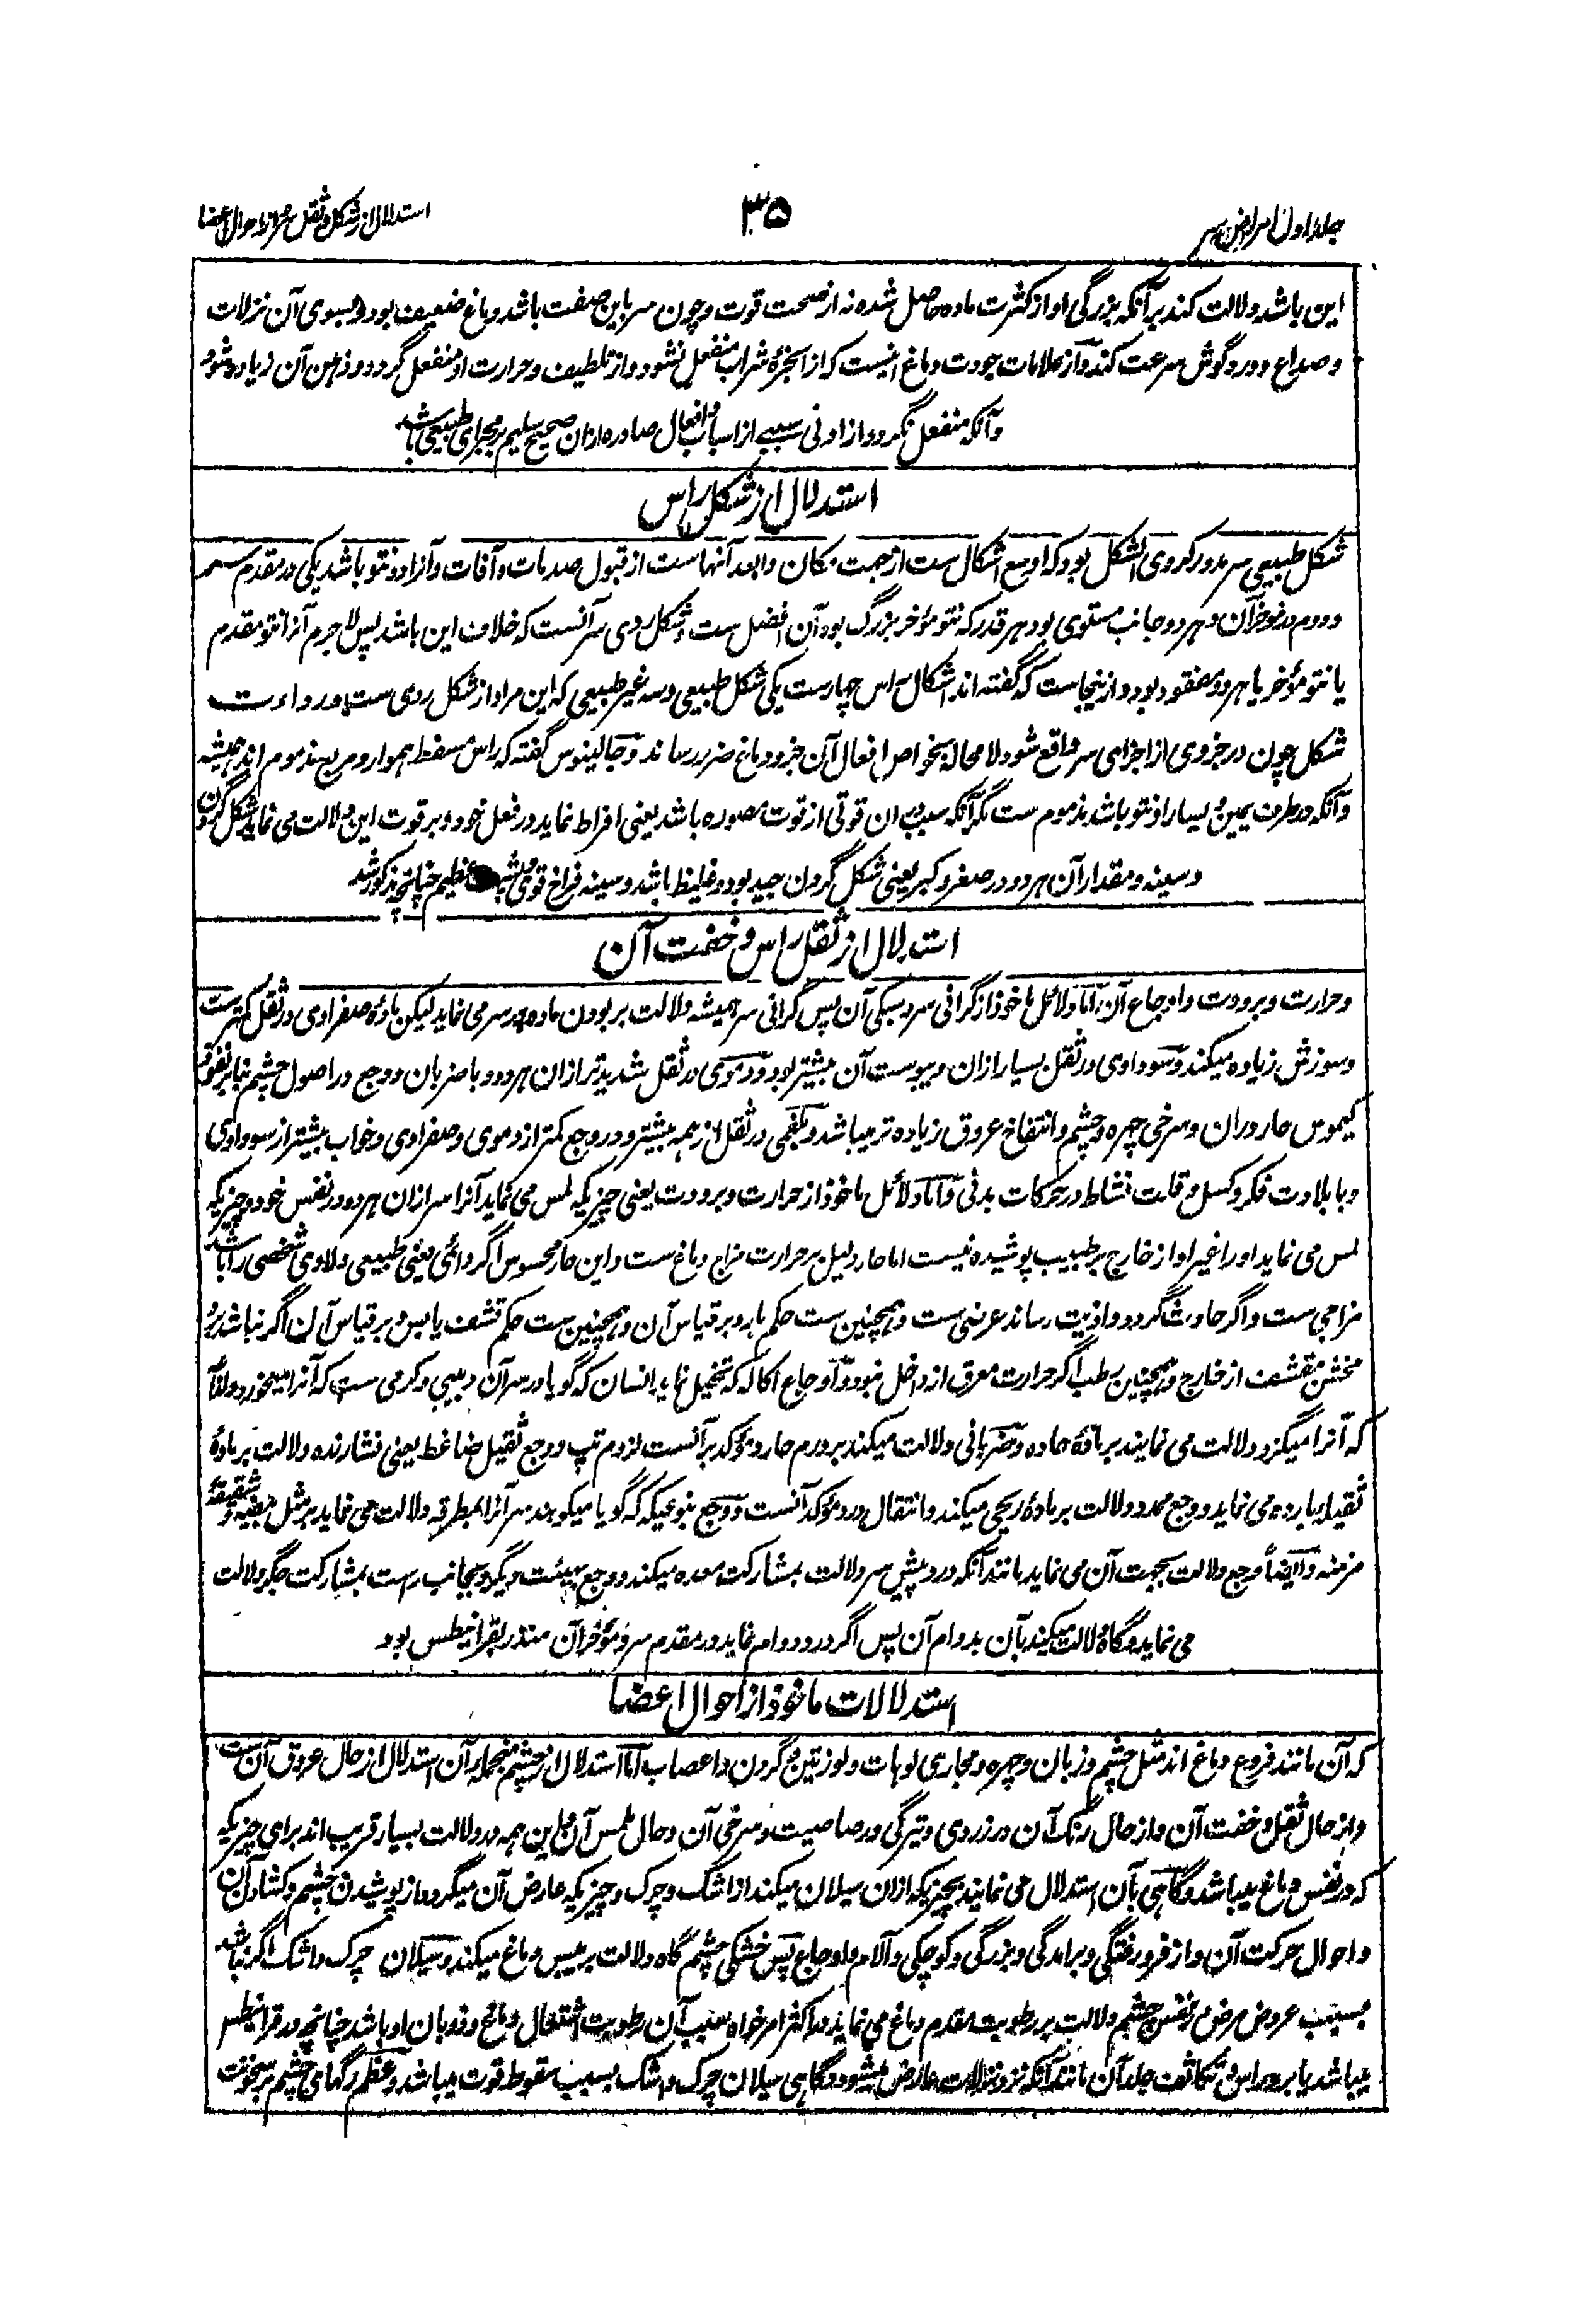 جلد اول امراض سر
۳۵
استدلال از شکل و ثقل سر و از احوال اعضا
این باشد دلالت کند بر آنکه بزرگی او از کثرت ماده حاصل شده نه از صحت قوت و چون سر باین صفت باشد دماغ ضعیف بود و بسوی آن نزلات
و صداع و درد گوش سرعت کند و از علامات جودت دماغ اینست که از ابخرهٔ شراب منفعل نشود و از تلطیف و حرارت او منفعل گردد و ذهن آن زیاده شود
و آنکه منفعل نگردد از ادنی سببے از اسباب و افعال صادره ازان صحیح سلیم بر مجرای طبیعی باشد
استدلال از شکل راس
شکل طبیعی سر مدور کروی الشکل بود که اوسع اشکال ست از جهت مکان و ابعد آنهاست از قبول صدمات و آفات و آنرا دو نتو باشد یکی در مقدم سر
و دوم در موخر آن و هر دو جانب مستوی بود هر قدر که نتو مؤخر بزرگ بود آن افضل ست و شکل ردی سر آنست که خلاف این باشد پس لاجرم آنرا نتو مقدم
یا نتو مؤخر یا هر دو مفقود بود و ازینجاست که گفته اند اشکال راس چهارست یکی شکل طبیعی و سه غیر طبیعی که این مراد از شکل ردی ست و رداءت
شکل چون در جزوی از اجزای سر واقع شود لا محاله بخواص افعال آن جزو دماغ ضرر رساند و جالینوس گفته که راس مسفط هموار و مربع مذموم اند همیشه
و آنکه در طرف یمین و یسار او نتو باشد مذموم ست مگر آنکه سبب ان قوتی از قوت مصوره باشد یعنی افراط نماید در فعل خود و بر قوت این دلالت می نماید شکل گردن
و سینه و مقدار آن هر دو در صغر و کبر یعنی شکل گردن جید بود و غلیظ باشد و سینه فراخ قوی عظیم چنانچه مذکور شد
استدلال از ثقل راس و خفت آن
و حرارت و برودت و اوجاع آن اما دلائل ماخوذ از گرانی سر و سبکی آن پس گرانی سر همیشه دلالت بر بودن ماده در سر می نماید لیکن مادهٔ صفراوی در ثقل کمترست
و سوزش زیاده میکند و سوداوی در ثقل بسیار ازان و یبوست آن بیشتر بود و دموی در ثقل شدیدتر ازان هر دو و با ضربان و وجع در اصول چشم بنابر نفوذ
کیموس حار دران و سرخی چهره و چشم و انتفاخ عروق زیاده تر میباشد و بلغمی در ثقل از همه بیشتر و در وجع کمتر از دموی و صفراوی و خواب بیشتر از سوداوی
و با بلادت فکر و کسل و قلت نشاط در حرکات بدنی و اما دلائل ماخوذ از حرارت و برودت یعنی چیزیکه لمس می نماید آنرا سر ازان هر دو در نفس خود و چیزیکه
لمس می نماید او را غیر او از خارج بر طبیب پوشیده نیست اما حار دلیل بر حرارت مزاج دماغ ست و این حار محسوس اگر دائمی یعنی طبیعی ولادی شخصی را باشد
مزاجی ست و اگر حادث گردد و اذیت رساند عرضی ست و همچنین ست حکم بارد بر قیاس آن و همچنین ست حکم قشف یابس و بر قیاس آن اگر نباشد برد
مخشن مقشف از خارج و همچنین رطب اگر حرارت معرق از داخل نبود و اوجاع اکاله که تخییل نماید انسان که گویا در سر آن دبیبی و کرمی ست که آنرا میخورد
که آنرا میگزد دلالت می نمایند بر مادهٔ حاده و ضربانی دلالت میکند بر ورم حار و مؤکد بر آنست لزوم تپ و وجع ثقیل ضاغط یعنی فشارنده دلالت بر مادهٔ
ثقیل بارده می نماید و وجع ممدد دلالت بر مادهٔ ریحی میکند و انتقال درد مؤکد آنست و وجع بنوعیکه که گویا میکوبند سر آنرا بمطرقه دلالت می نماید بر مثل بیضه و شقیقهٔ
مزمنه و ایضاً وجع دلالت بجهت آن می نماید مانند آنکه درد پیش سر دلالت بمشارکت معده میکند و وجع بهیئت دیگر و بجانب راست بمشارکت جگر دلالت
می نماید و گاه دلالت میکند بآن بدوام آن پس اگر درد دوام نماید در مقدم سر و مؤخر آن منذر بقرانیطس بود
استدلالات ماخوذ از احوال اعضا
که آن مانند فروع دماغ اند مثل چشم و زبان و چهره و مجاری لوهات و لوزتین و گردن و اعصاب اما استدلال از چشم منجمله آن استدلال از حال عروق آن ست
و از حال ثقل و خفت آن و از حال رنگ آن در زردی و تیرگی و رصاصیت و سرخی آن و حال لمس آن و این همه در دلالت بسیار قریب اند برای چیزیکه
که در نفس دماغ میباشد و گاهی بآن استدلال می نمایند بچیزیکه ازان سیلان میکند از اشک و چرک و چیزیکه عارض آن میگردد از پوشیدن چشم و کشادن آن
و احوال حرکت آن و از فرورفتگی و برامدگی و بزرگی و کوچکی و آلام و اوجاع پس خشکی چشم گاه دلالت بر یبس دماغ میکند و سیلان چرک و اشک اگر نباشد
بسبب عروض مرض در نفس چشم دلالت بر رطوبت مقدم دماغ می نماید در اکثر امر خواه سبب آن رطوبت اشتعال دماغ و ذوبان او باشد چنانچه در قرانیطس
میباشد یا برد راس و تکاثف جلد آن مانند آنکه نزد نزلات عارض میشود و گاهی سیلان چرک و اشک بسبب سقوط قوت میباشد و عظم رگهای چشم بر سخونت